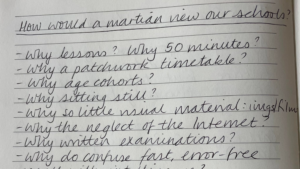 How would a martian view our schools?
- Why lessons? Why 50 minutes?
- Why a patchwork timetable?
- Why age cohorts?
- Why sitting still?
- Why so little visual material: imgs/film
- Why the neglect of the Internet?
- Why written examinations?
- Why do confuse fast, error-free